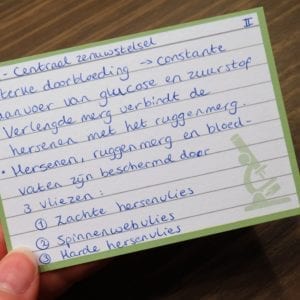 II
- Centraal zenuwstelsel
sterke doorbloeding → constante
aanvoer van glucose en zuurstof
Verlengde merg verbindt de
hersenen met het ruggenmerg.
• Hersenen, ruggenmerg en bloed-
vaten zijn beschermd door
3 vliezen:
① Zachte hersenvlies
② Spinnenwebvlies
③ Harde hersenvlies